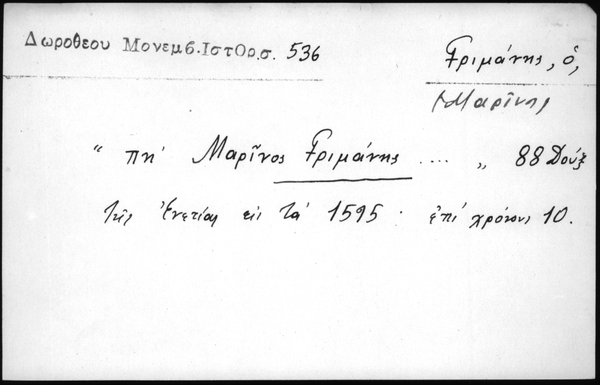 Δωροθεου Μονεμβ.ΙστΟρ.σ. 536
Γριμάνης, ὁ,
Μαρῖνος
“ πη' Μαρῖνος Γριμάνης .... „ 88 Δούξ
τῆς Ἐνετίας εἰς τὰ 1595 · ἐπὶ χρόνους 10.